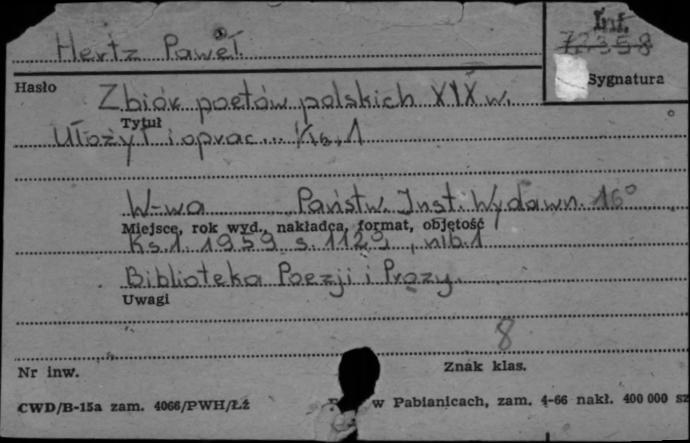 Inf.
72358
Hertz Paweł
Hasło
Sygnatura
Zbiór poetów polskich XIX w.
Tytuł
Ułożył i oprac... 1
W-wa Państw. Inst. Wydawn. 16°
Miejsce, rok wyd., nakładca, format, objętość
Ks. 1. 1959 s. 1129, nlb. 1
Biblioteka Poezji i Prozy
Uwagi
8
Nr inw.
Znak klas.
CWD/B-15a zam. 4066/PWH/Łź w Pabianicach, zam. 4-66 nakł. 400 000 sz